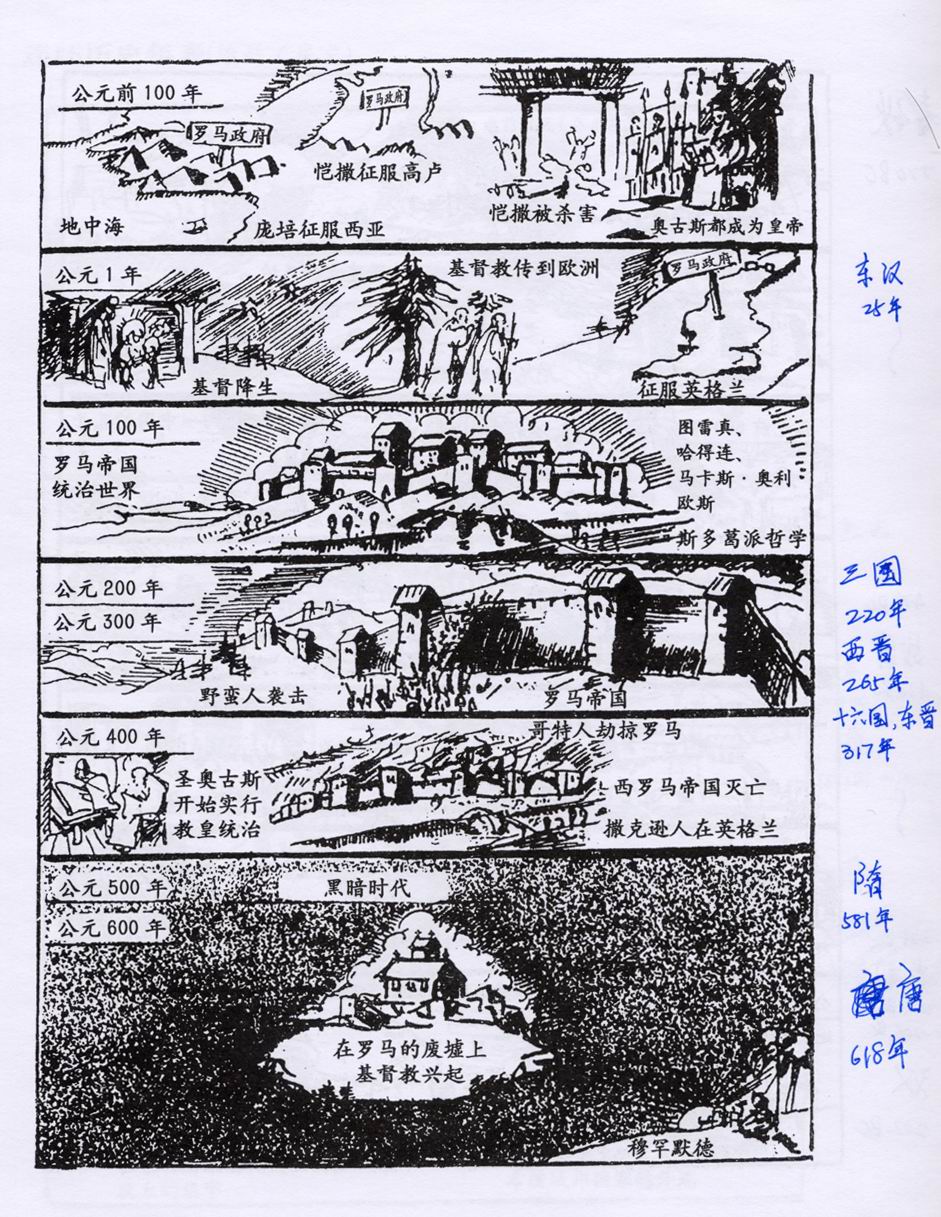 公元前 100 年
罗马政府
罗马政府
恺撒征服高卢
恺撒被杀害
地中海
庞培征服西亚
奥古斯都成为皇帝
公元 1 年
基督教传到欧洲
罗马政府
基督降生
征服英格兰
东汉
25年
公元 100 年
罗马帝国
统治世界
图雷真、
哈得连、
马卡斯·奥利
欧斯
斯多葛派哲学
公元 200 年
公元 300 年
野蛮人袭击
罗马帝国
三国
220年
西晋
265年
十六国,东晋
317年
公元 400 年
哥特人劫掠罗马
圣奥古斯
开始实行
教皇统治
西罗马帝国灭亡
撒克逊人在英格兰
公元 500 年
黑暗时代
公元 600 年
在罗马的废墟上
基督教兴起
穆罕默德
隋
581年
唐
618年